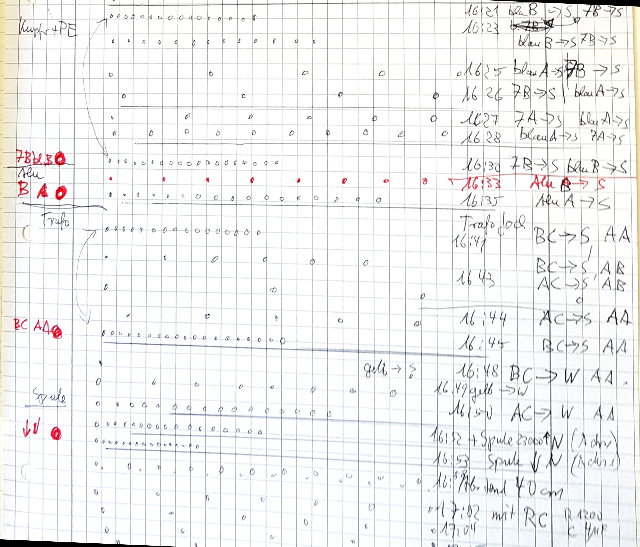 16:21 blau B → S 7B → S
Kupfer + PE
16:23
blau B → S 7B → S
16:25 blau A → S 7B → S
16:26 7B → S blau A → S
16:27 7A → S blau A → S
16:28 blau A → S 7A → S
16:30 7B → S blau B → S
Alu
16:33 Alu B → S
B A
16:35 Alu A → S
Trafo
Trafo
16:41 BC → S AA
BC → S AB
16:43 AC → S AB
16:44 AC → S AA
BC AA
16:45 BC → S AA
gelb → S
16:48 BC → W AA
16:49 gelb → W
Spule
16:50 AC → W AA
16:52 + Spule 23000 ↑ N
16:53 Spule ↓ N
Abstand 40 cm
17:02 mit RC R 1200
17:04 C 4µF